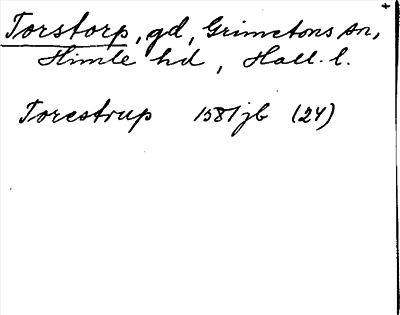 Torstorp, gd, Grimetons sn,
Himle hd, Hall. l.
Torestrup 1581 jb (24)